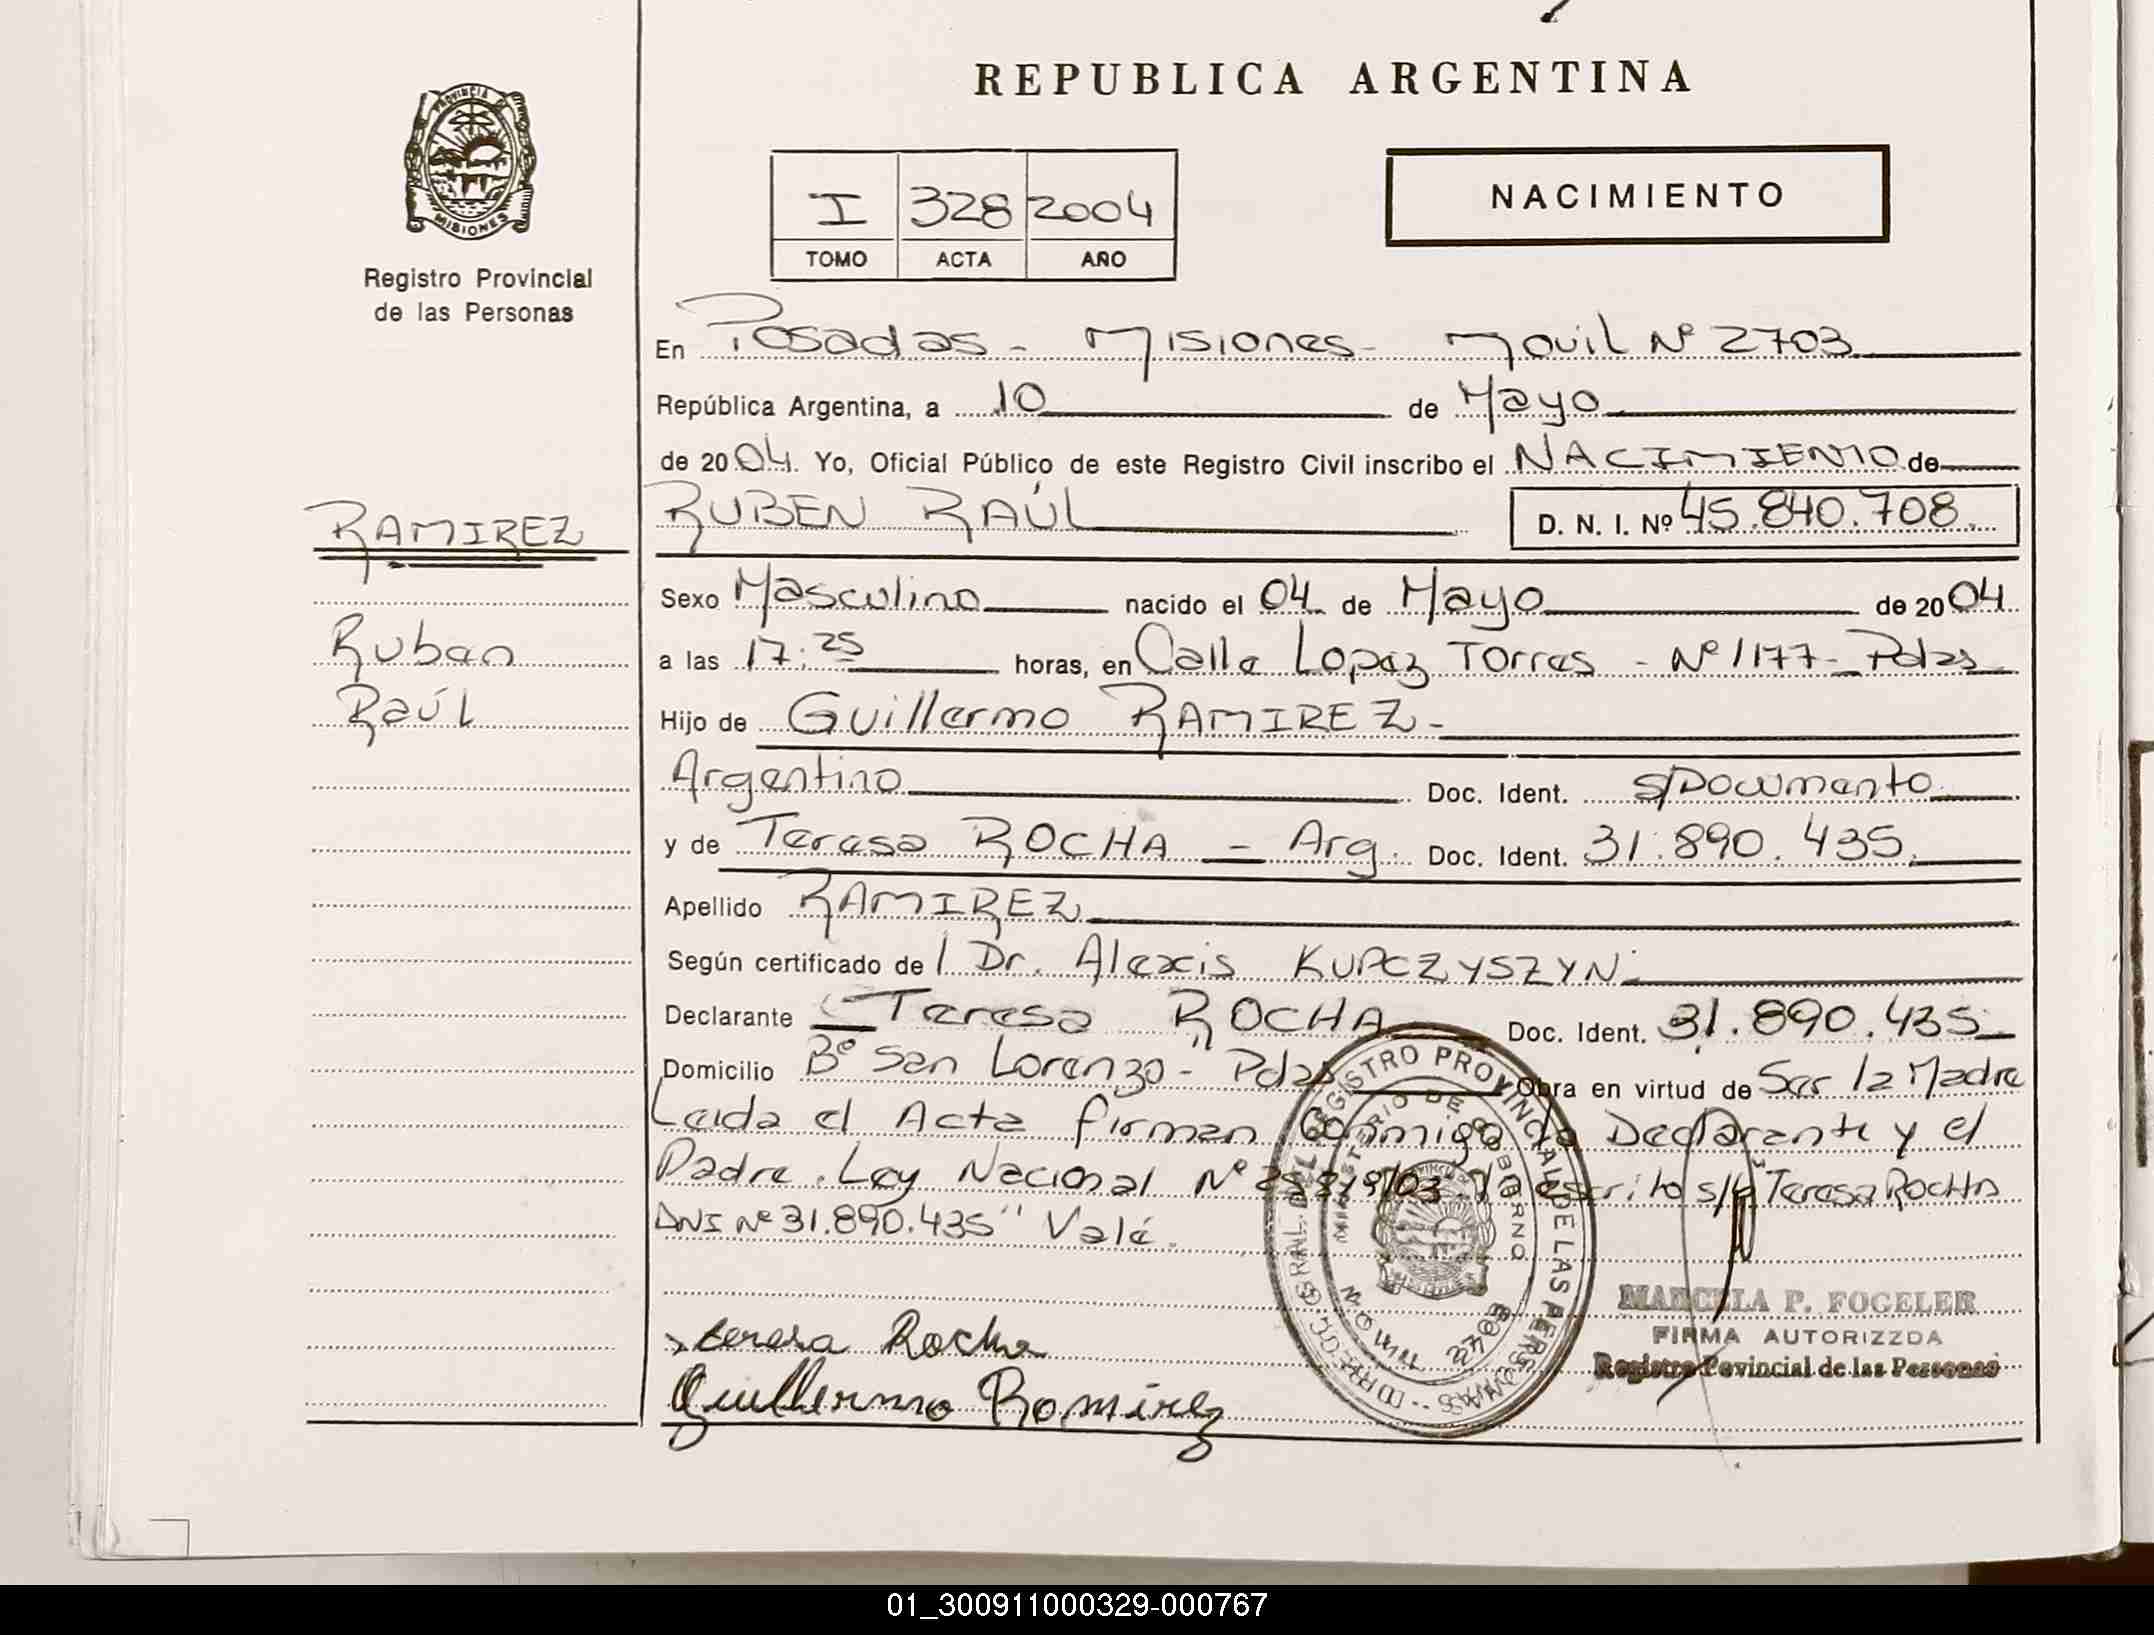 REPUBLICA ARGENTINA
PROVINCIA DE
MISIONES
Registro Provincial
de las Personas
I 328 2004
TOMO ACTA AÑO
NACIMIENTO
En Posadas - Misiones - Movil Nº 2703
República Argentina, a 10 de Mayo
de 2004. Yo, Oficial Público de este Registro Civil inscribo el NACIMIENTO de
RAMIREZ
Ruben
Raúl
RUBEN RAÚL D. N. I. Nº 45.840.708
Sexo Masculino nacido el 04 de Mayo de 2004
a las 17:25 horas, en Calle Lopez Torres - Nº 1177 - Pdas
Hijo de Guillermo RAMIREZ -
Argentino Doc. Ident. s/Documento
y de Teresa ROCHA - Arg. Doc. Ident. 31.890.435.
Apellido RAMIREZ
Según certificado de / Dr. Alexis KUPCZYSZYN.
Declarante Teresa ROCHA Doc. Ident. 31.890.435
Domicilio Bº San Lorenzo - Pdas Obra en virtud de Ser la Madre
Leida el Acta firman Conmigo la Declarante y el
Padre. Ley Nacional Nº /03. escrito s/r "Teresa ROCHA
DNI Nº 31.890.435" Vale.
REGISTRO PROVINCIAL DE LAS PERSONAS
MINISTERIO DE GOBIERNO
MARCELA P. FOGELER
FIRMA AUTORIZZDA
Registro Povincial de las Personas
teresa Rocha
Guillermo Romirez
01_300911000329-000767